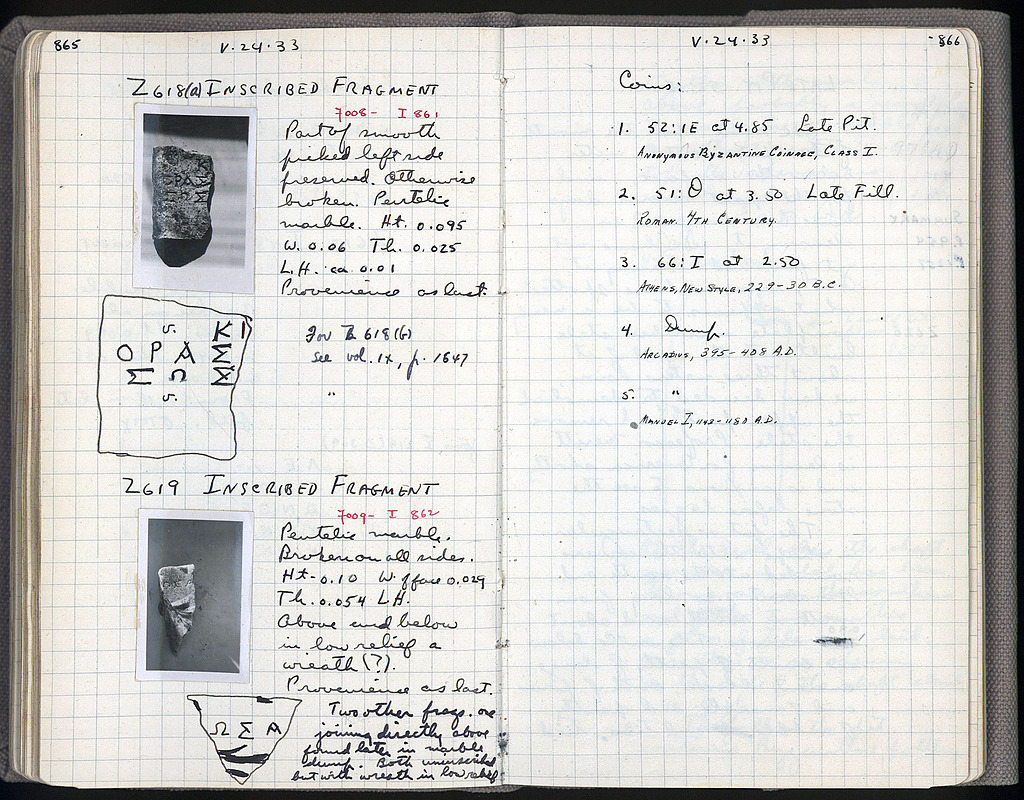 865
V · 24 · 33
Z618(a) INSCRIBED FRAGMENT
7008 - I 861
Part of smooth
picked left side
preserved. Otherwise
broken. Pentelic
marble. Ht. 0.095
W. 0.06 Th. 0.025
L.H. ca. 0.01
Provenience as last.
v.
ΚΙ
Ο Ρ Α
Μ
Σ Ω
v.
For Z 618(b)
see vol. IX, p. 1647
"
Z619 INSCRIBED FRAGMENT
7009 - I 862
Pentelic marble.
Broken on all sides.
Ht - 0.10 W. of face 0.029
Th. 0.054 L.H.
Above and below
in low relief a
wreath (?).
Provenience as last.
Two other frags. are
joining directly above
found later in marble
dump. Both uninscribed
but with wreath in low relief
Ω Σ Α
V · 24 · 33
866
Coins:
1. 52:ΙΕ at 4.85 Late Pit.
ANONYMOUS BYZANTINE COINAGE, CLASS I.
2. 51:Θ at 3.50 Late Fill.
ROMAN. 4TH CENTURY.
3. 66:Ι at 2.50
ATHENS, NEW STYLE, 229-30 B.C.
4. Dump.
ARCADIUS, 395-408 A.D.
5. "
MANUEL I, 1143-1180 A.D.